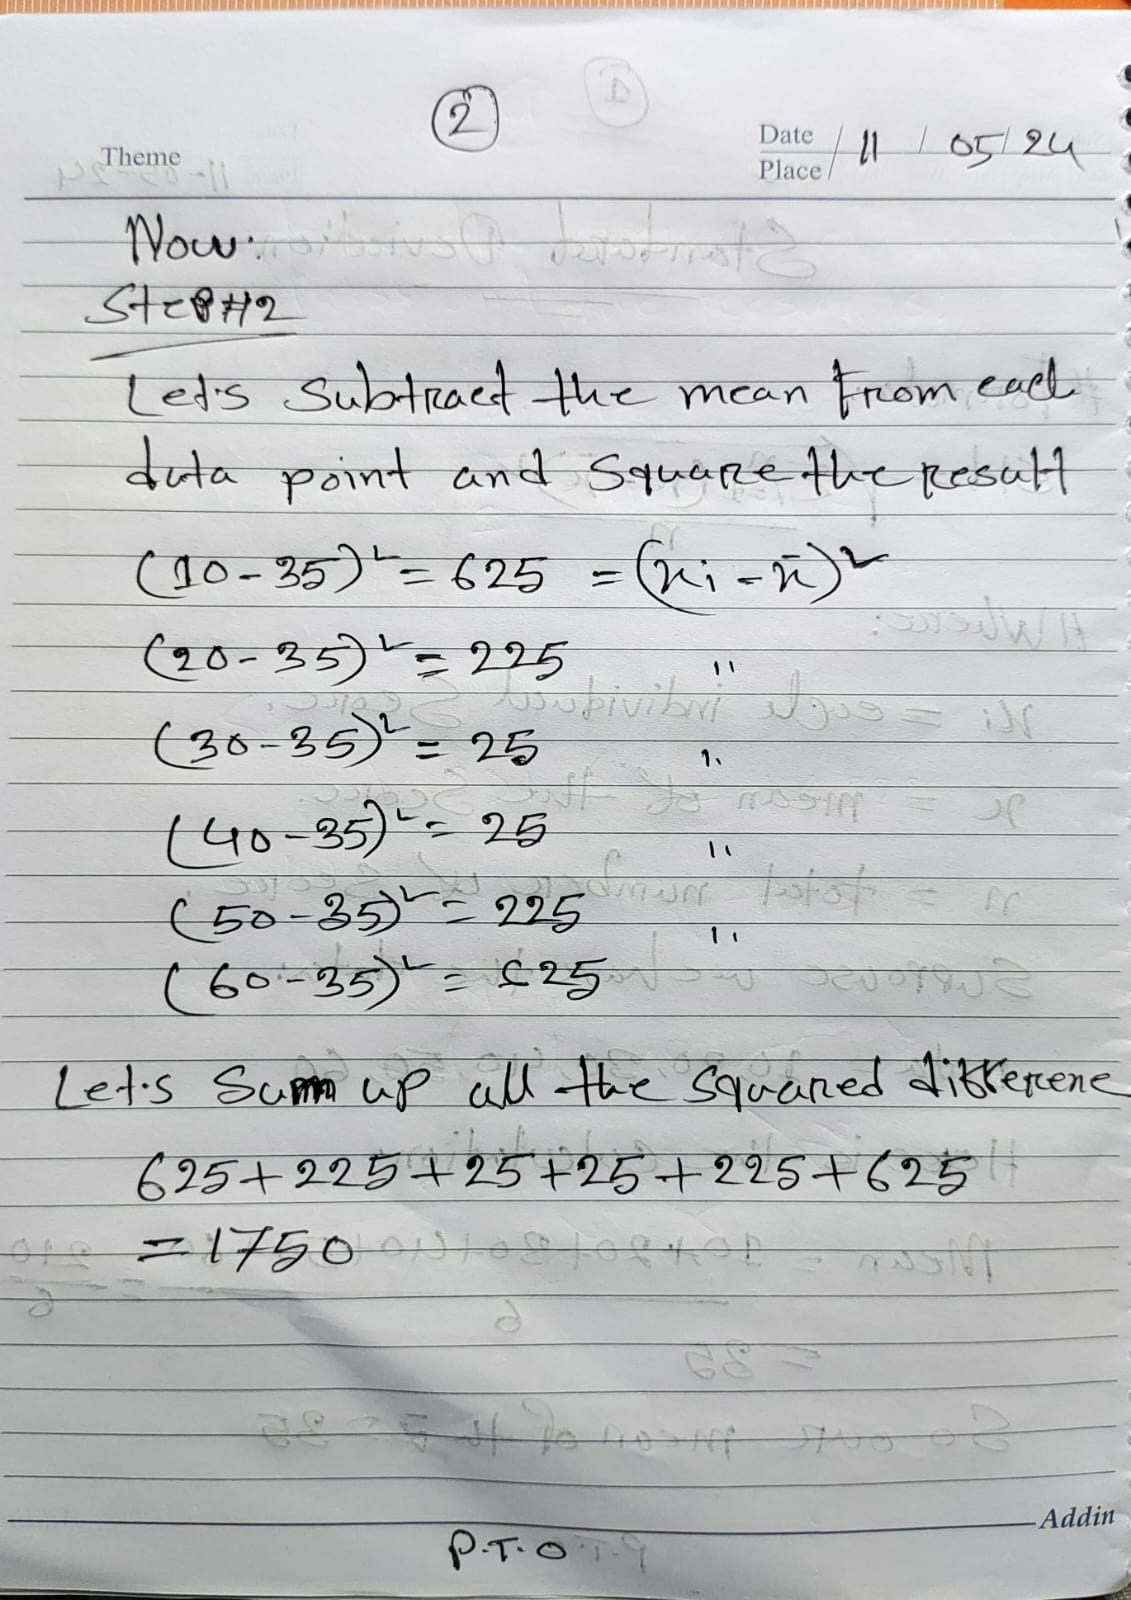 2
Theme
Date
Place
11 / 05/24
Now:
Step#2
Let's Subtract the mean from each
data point and Square the result
(10-35)² = 625 = (xi - x̄)²
(20-35)² = 225 "
(30-35)² = 25 "
(40-35)² = 25 "
(50-35)² = 225 "
(60-35)² = 625
Let's Sum up all the squared differene
625+225+25+25+225+625
=1750
Addin
P.T.O